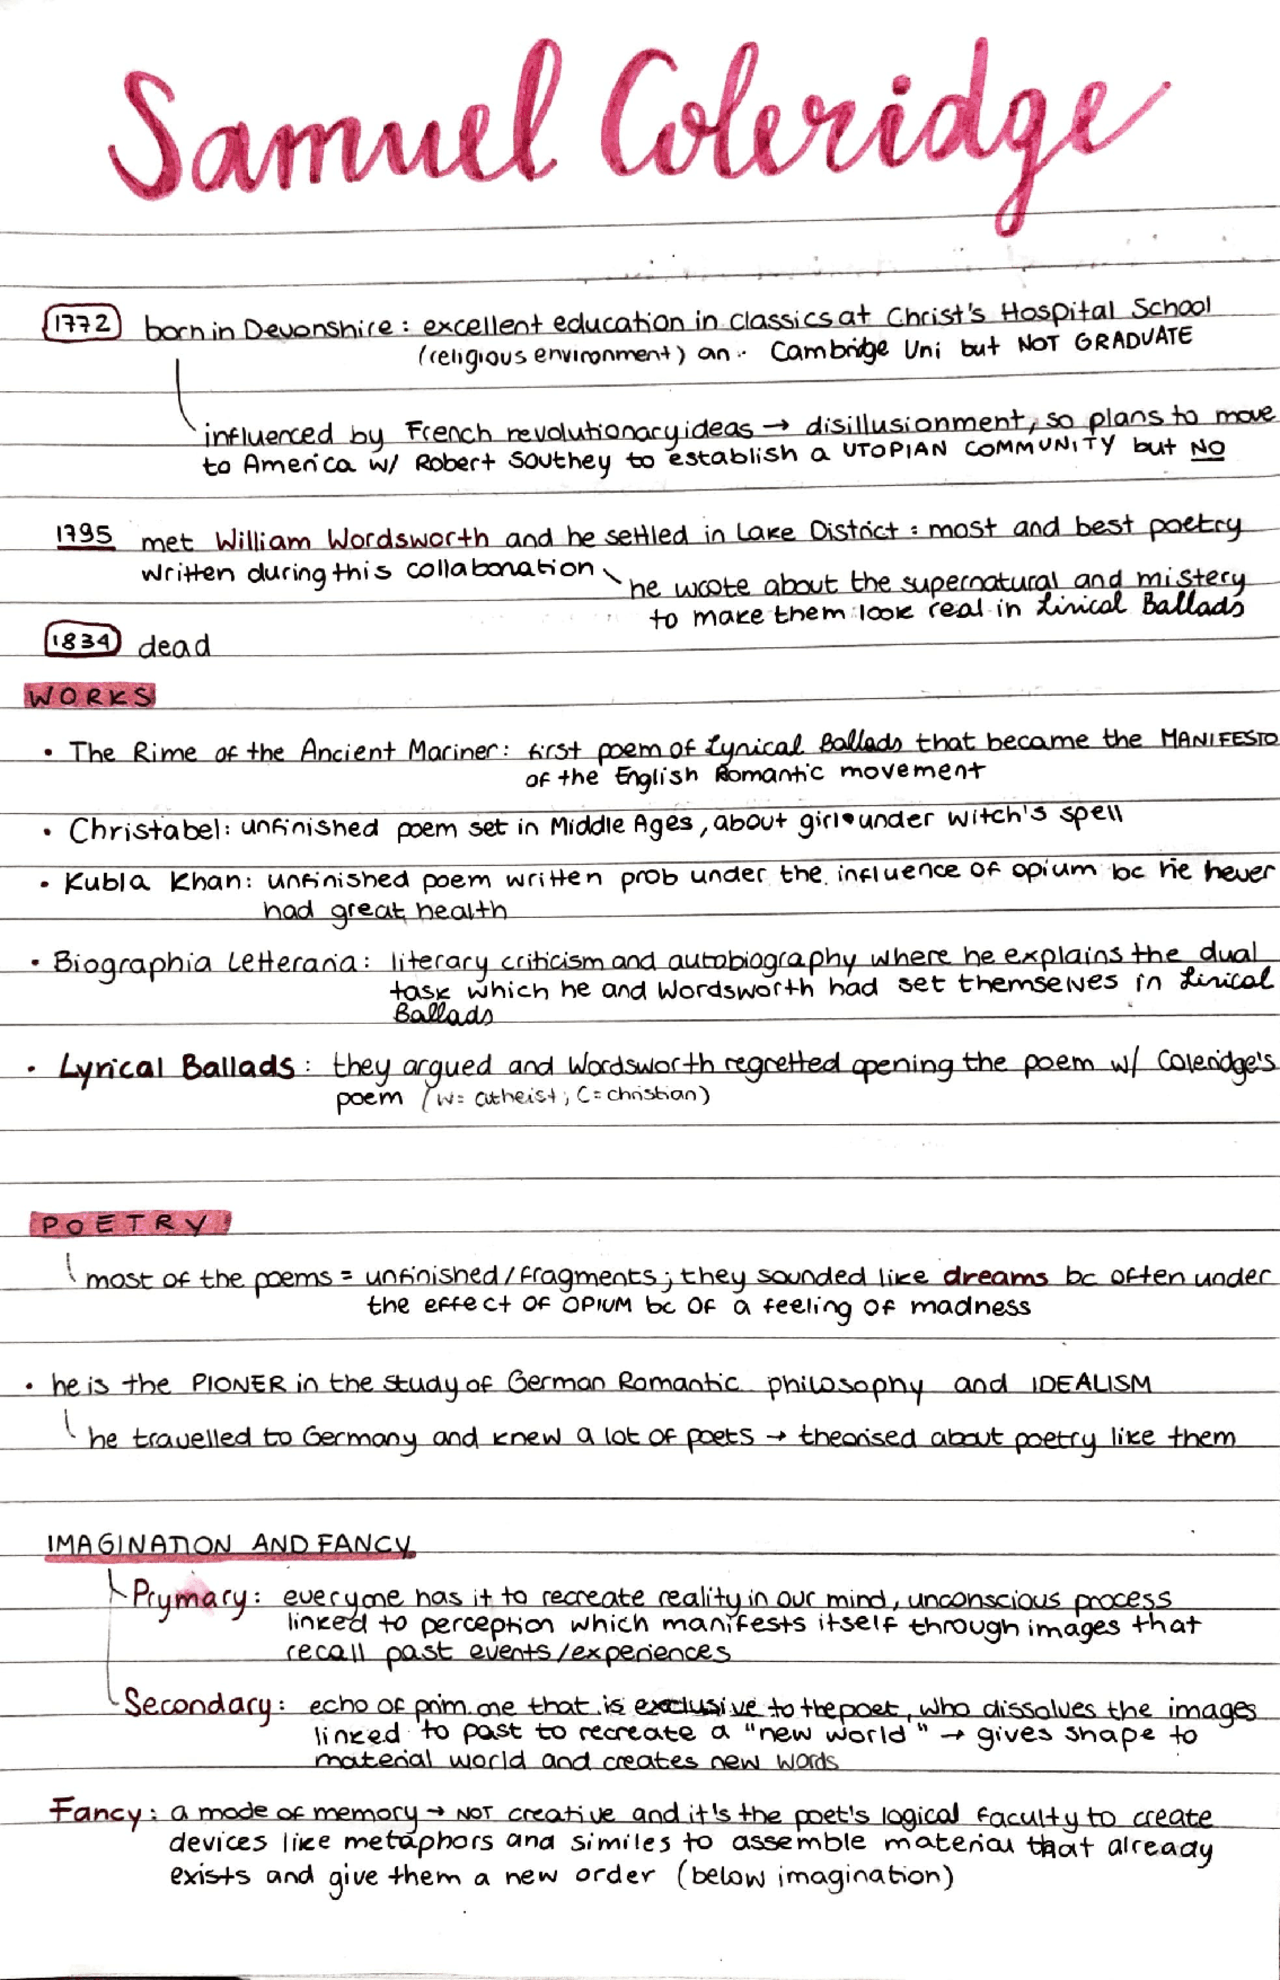 Samuel Coleridge
1772 born in Devonshire: excellent education in classics at Christ's Hospital School
(religious environment) an Cambridge Uni but NOT GRADUATE
influenced by French revolutionary ideas → disillusionment, so plans to move
to America w/ Robert Southey to establish a UTOPIAN COMMUNITY but NO
1795 met William Wordsworth and he settled in Lake District: most and best poetry
written during this collaboration
he wrote about the supernatural and mistery
to make them look real in Lirical Ballads
1834 dead
WORKS
• The Rime of the Ancient Mariner: first poem of Lyrical Ballads that became the MANIFESTO
of the English Romantic movement
• Christabel: unfinished poem set in Middle Ages, about girl under witch's spell
• Kubla Khan: unfinished poem written prob under the influence of opium bc he never
had great health
• Biographia Letteraria: literary criticism and autobiography where he explains the dual
task which he and Wordsworth had set themselves in Lirical
Ballads
• Lyrical Ballads: they argued and Wordsworth regretted opening the poem w/ Coleridge's
poem (W= atheist; C= christian)
POETRY
most of the poems = unfinished/fragments; they sounded like dreams bc often under
the effect OF OPIUM bc OF a feeling of madness
• he is the PIONER in the study of German Romantic philosophy and IDEALISM
he travelled to Germany and knew a lot of poets → theorised about poetry like them
IMAGINATION AND FANCY
Prymary: everyone has it to recreate reality in our mind, unconscious process
linked to perception which manifests itself through images that
recall past events/experiences
Secondary: echo of prim. one that is exclusive to the poet, who dissolves the images
linked to past to recreate a "new world" → gives shape to
material world and creates new words
Fancy: a mode of memory → NOT creative and it's the poet's logical faculty to create
devices like metaphors and similes to assemble material that already
exists and give them a new order (below imagination)